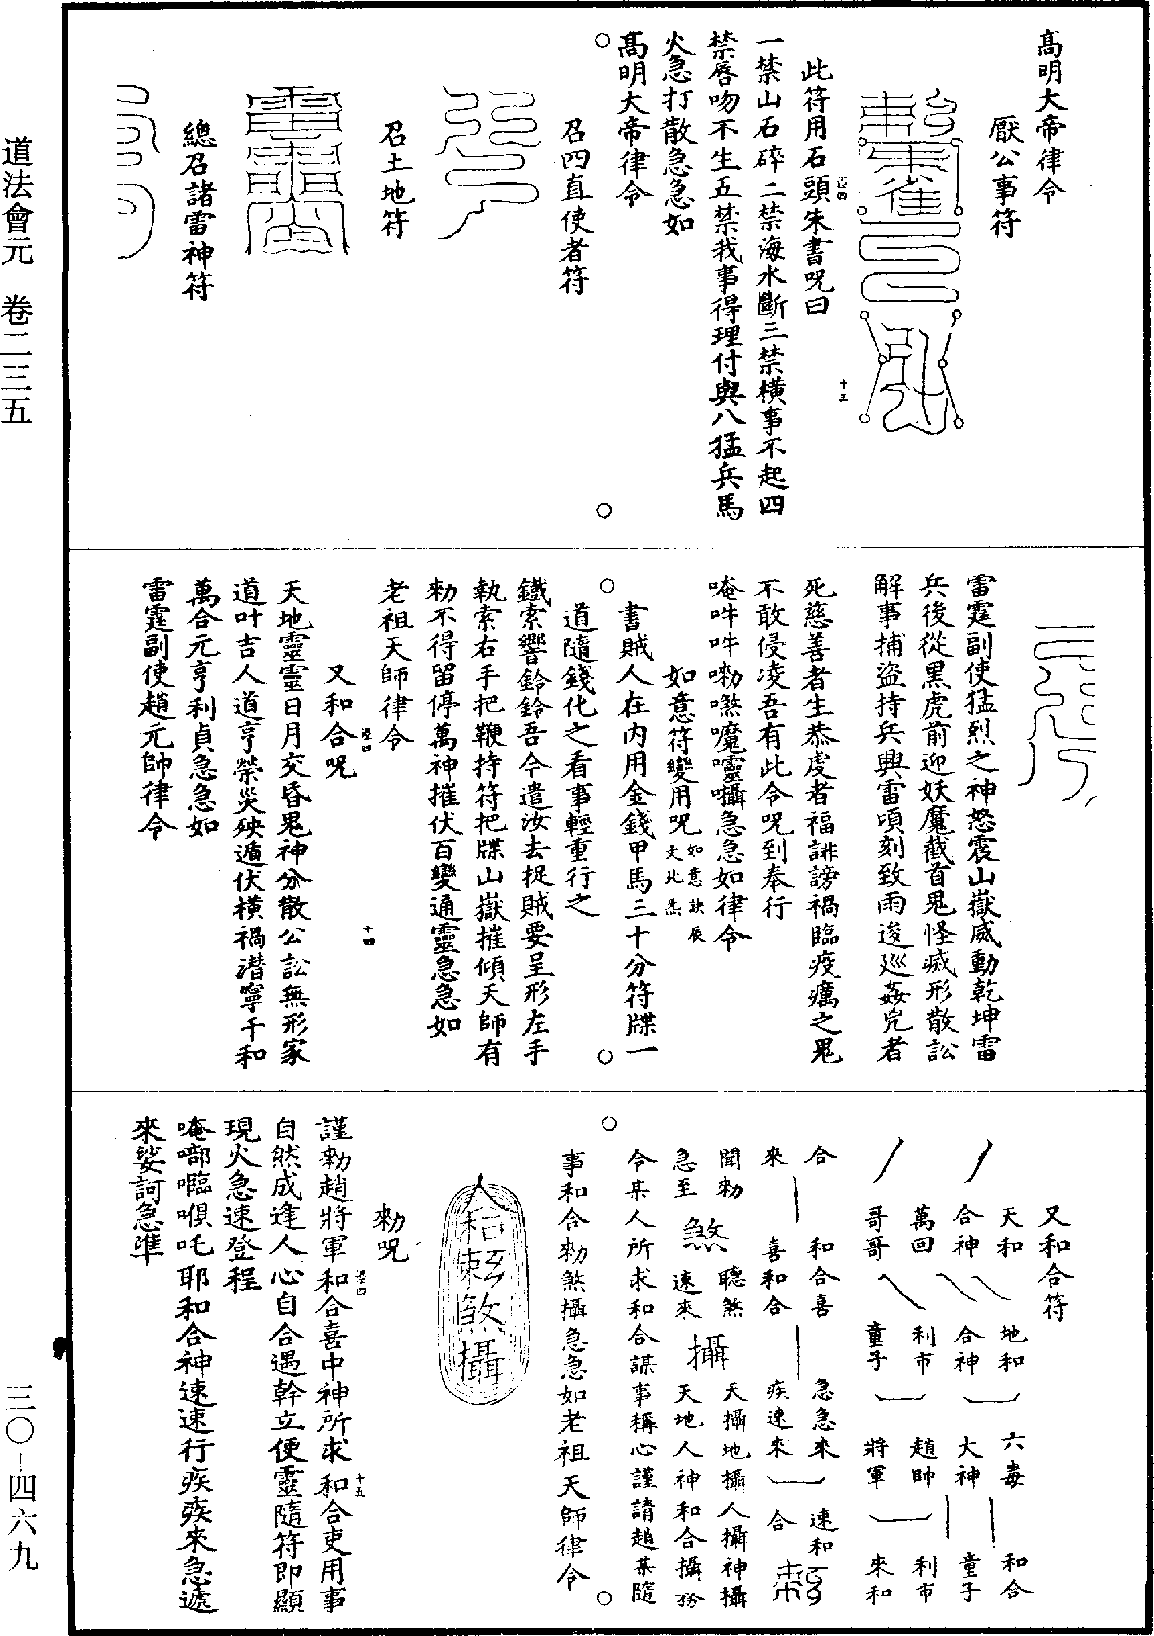 道法會元　卷二三五
三〇–四六九
高明大帝律令
厭公事符
此符用石頭朱書呪曰
一禁山石碎二禁海水斷三禁橫事不起四
禁唇吻不生五禁我事得理付與八猛兵馬
火急打散急急如
高明大帝律令
召四直使者符
召土地符
總召諸雷神符
雷霆副使猛烈之神怒震山嶽威動乾坤雷
兵後從黑虎前迎妖魔截首鬼怪滅形散訟
解事捕盜持兵興雷頃刻致雨逡巡姦兇者
死慈善者生恭虔者福誹謗禍臨疫癘之鬼
不敢侵凌吾有此令呪到奉行
唵吽吽勑嚥魔靈囁急急如律令
如意符變用呪 如意訣辰
書賊人在內用金錢甲馬三十分符牒一
道隨錢化之看事輕重行之
鐵索響鈴鈴吾今遣汝去捉賊要呈形左手
執索右手把鞭持符把牒山嶽摧傾天師有
勑不得留停萬神摧伏百變通靈急急如
老祖天師律令
又和合呪
天地靈靈日月交昏鬼神分散公訟無形家
道叶吉人道亨榮災殃遁伏橫禍潛寧千和
萬合元亨利貞急急如
雷霆副使趙元帥律令
又和合符
天和　地和　六毒　和合
合神　合神　大神　童子
萬回　利市　趙帥　利市
哥哥　童子　將軍　來和
合　和合喜　急急來　速和
來　喜和合　疾速來　合
聞勑　聽煞　天攝地攝人攝神攝
急至　煞　速來　攝　天地人神和合攝
令某人所求和合謀事稱心謹請趙某隨
事和合勑煞攝急急如老祖天師律令
人和合勑煞攝
勑呪
謹勑趙將軍和合喜中神所求和合吏用事
自然成逢人心自合遇幹立便靈隨符即顯
現火急速登程
唵㗙囉唄吒耶和合神速速行疾疾來急遞
來娑訶急準